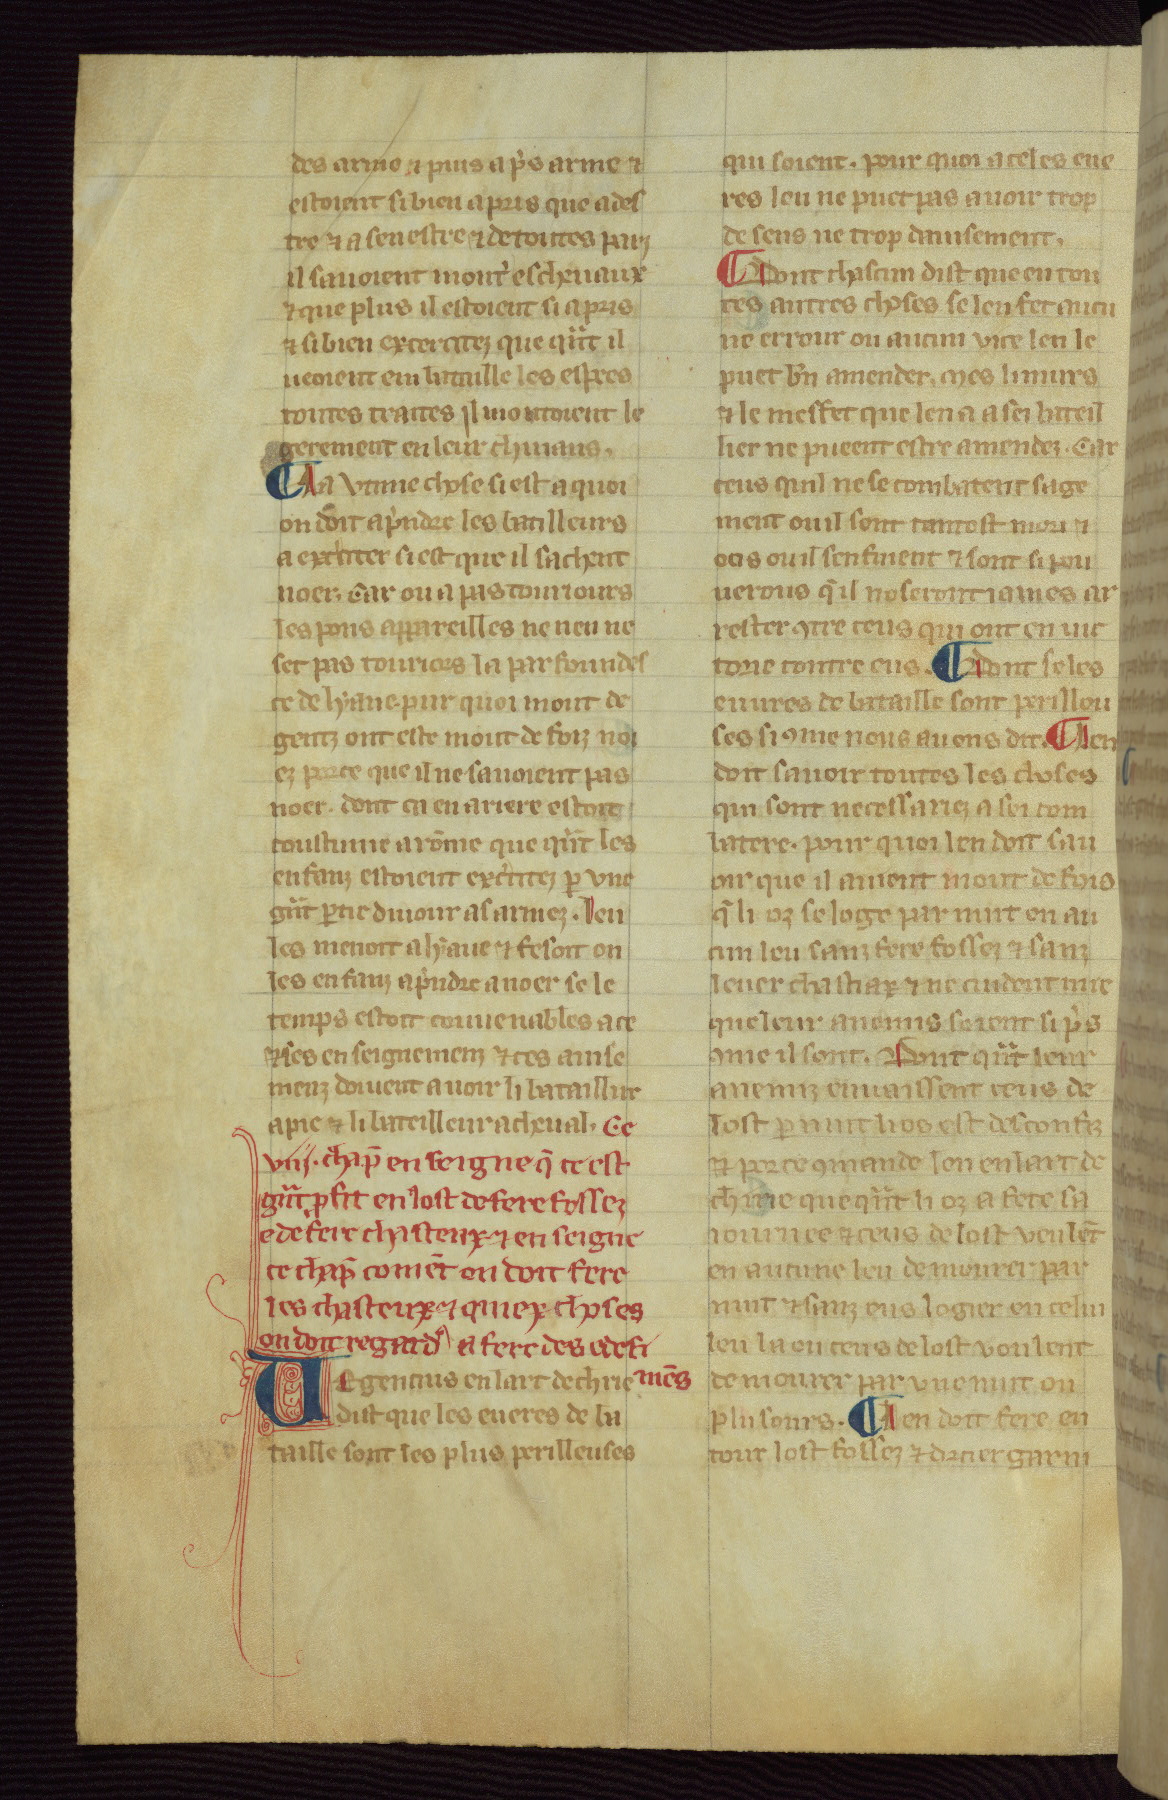 des arme ⁊ puis ap̃s arme ⁊
estoient si bien apris que a des
tre ⁊ a senestre ⁊ de toutes parz
il sauoient mont̾ es cheuaux
⁊ que plus il estoient si apris
⁊ si bien excercitez que qũt il
ueoient em bataille les espees
toutes traites il montoient le
gerement en leur cheuaus.
¶ La vnme chose si est a quoi
on doit ap̃ndre les batilleurs
a exc̾citer si est que il sachent
noer. Car on a pas touriours
les pons appareilles ne neu ne
set pas touriors la parfoundes
ce de hyaue. pur quoi mout de
gentz ont este mout de foiz noi
ez por ce que il ne sauoient pas
noer. dont ca en ariere estoit
coustume a rōme que qũt les
enfanz estoient exc̾citez p̱ vne
gũt p̱tie du iour as armez. len
les menoit a hyaue ⁊ fesoit on
les enfanz ap̃ndre a noer se le
temps estoit conuenables a ce
⁊ ses enseignemenz ⁊ ces amse
menz doiuent auoir li batailleur
a pie ⁊ li batailleur a cheual. Ce
viij. chap̃ enseigne q̃ ce est
gũt p̱fit en lost de fere fossez
e de fere chasteux ⁊ enseigne
ce chap̃ comēt on doit fere
les chasteux ⁊ quiex choses
on doit regard̾ a fere des edefi
mēs
Vegencius en lart de chr̃ie
dist que les eueres de ba
taille sont les plus perilleuses
qui soient. pour quoi a celes eue
res len ne puet pas auoir trop
de sens ne trop dauisement.
¶ Dont chascun dist que en tou
tes autres choses se len fet aucu
ne errour ou aucun vice len le
puet bñ amender. mes li murs
⁊ le meffet que len a a sei bateil
lier ne pueent estre amendez. Car
ceus qui ne se combatent sage
ment ou il sont tantost mors ⁊
ocis ou il senfuient ⁊ sont si pou
uerous q̃ il noseront iames ar
rester ꝯtre ceus qui ont eu vic
torie contre eus. ¶ Dont se les
euures de bataille sont perillou
ses si ꝯme nous auons dit. ¶ len
doit sauoir toutes les choses
qui sont necessariez a sei com
batere. pour quoi len doit sau
oir que il auient mout de fois
q̃ li oz se loge par nuit en au
cun leu sanz fere fossez ⁊ sanz
leuer chastiax ⁊ ne cuident mie
que leur anemis soient si p̃s
ꝯme il sont. Dont qũt leur
anemiz enuaissent ceus de
lost p̱ nuit li os est desconfiz
⁊ por ce ꝯmande len en lart de
ch̾rie que qũt li oz a fete sa
iournee ⁊ ceus de lost veulēt
en aucune leu demourer par
nuit ⁊ sanz eus logier en celui
leu la ou ceus de lost voulent
demourer par vne nuit ou
plusours. ¶ len doit fere en
tour lost fossez ⁊ drecier garni